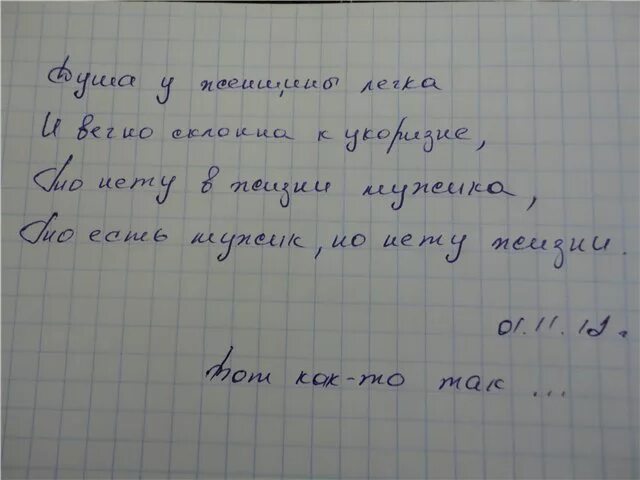 Душа у женщины легка
И вечно склонна к укоризне,
То нету в жизни мужика,
То есть мужик, но нету жизни.
01.11.12.
Вот как-то так ...